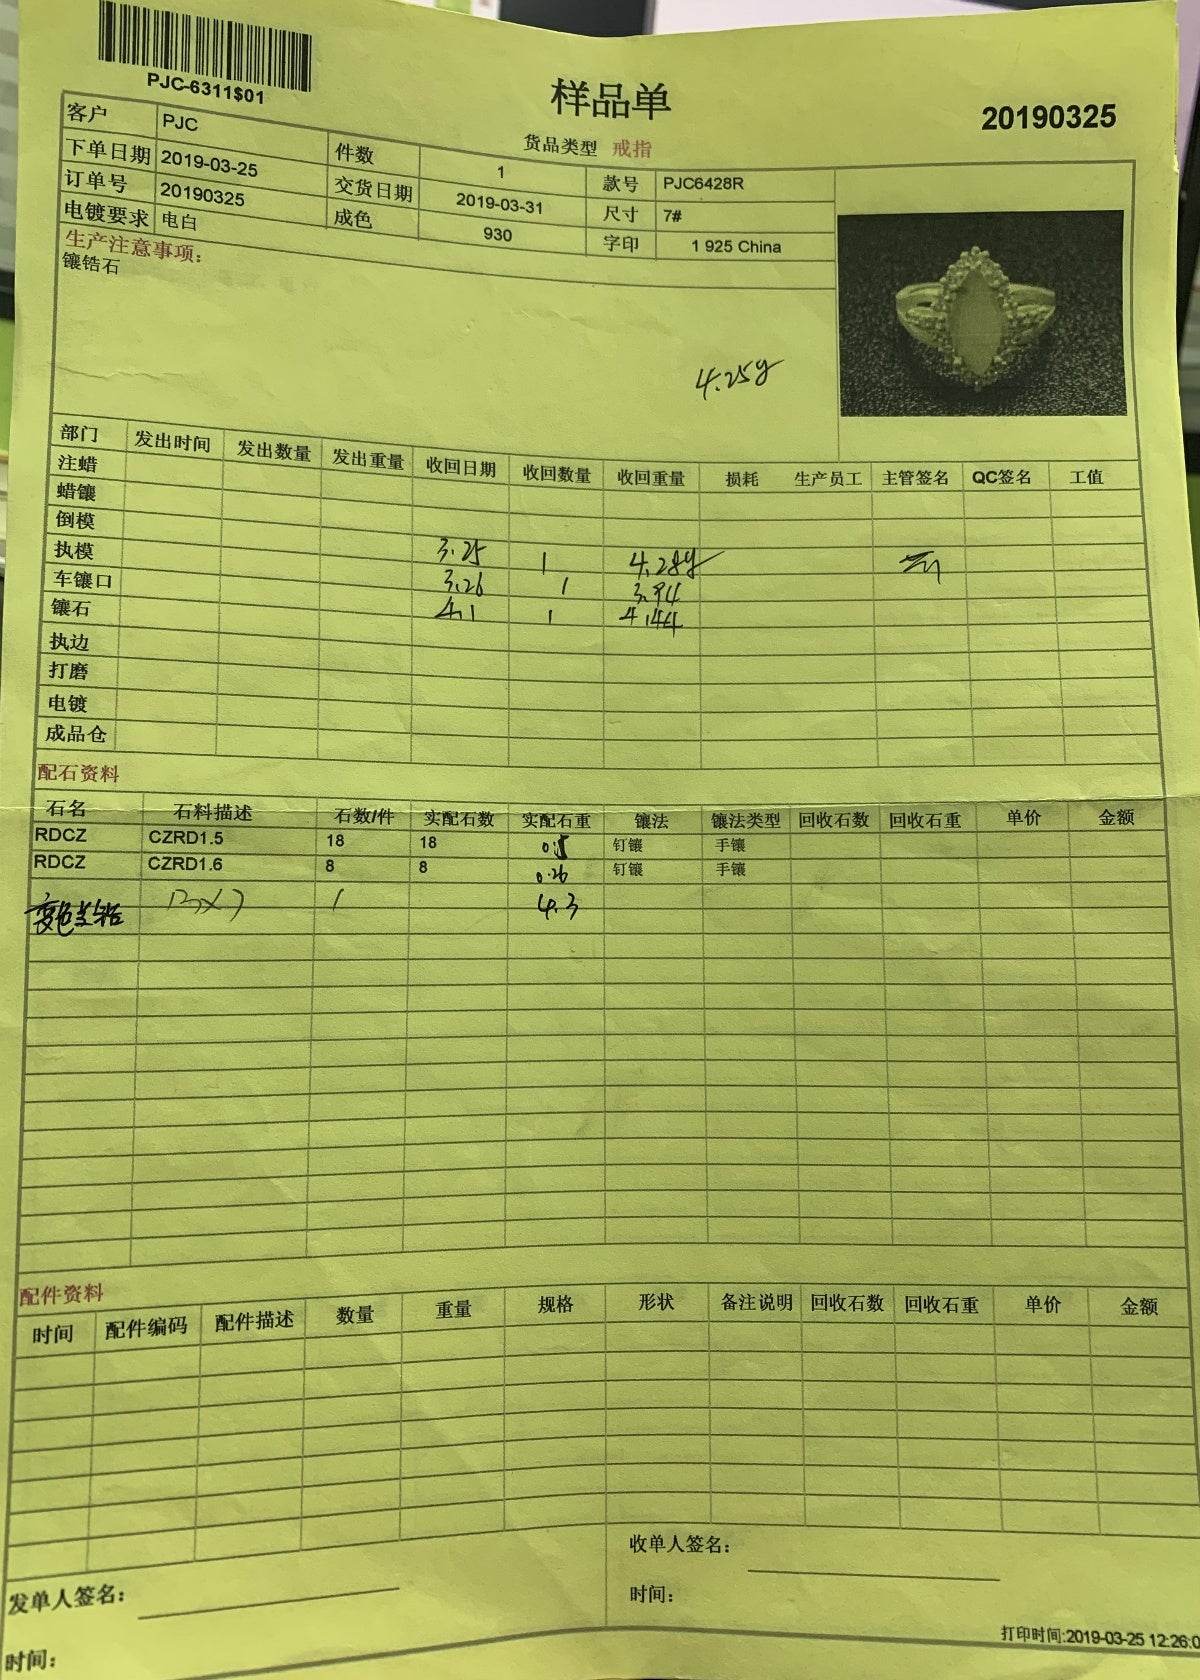 PJC-6311$01
样品单
20190325
货品类型 戒指
客户 PJC 件数 1 款号 PJC6428R
下单日期 2019-03-25 交货日期 2019-03-31 尺寸 7#
订单号 20190325 成色 930 字印 1 925 China
电镀要求 电白
生产注意事项:
镶锆石
4.25g
部门 发出时间 发出数量 发出重量 收回日期 收回数量 收回重量 损耗 生产员工 主管签名 QC签名 工值
注蜡
蜡镶
倒模
执模 3.25 1 4.28g
车镶口 3.26 1 3.94
镶石 4.1 1 4.144
执边
打磨
电镀
成品仓
配石资料
石名 石料描述 石数/件 实配石数 实配石重 镶法 镶法类型 回收石数 回收石重 单价 金额
RDCZ CZRD1.5 18 18 钉镶 手镶
RDCZ CZRD1.6 8 8 0.26 钉镶 手镶
变色 13x7 1 4.3
配件资料
时间 配件编码 配件描述 数量 重量 规格 形状 备注说明 回收石数 回收石重 单价 金额
发单人签名:
时间:
收单人签名:
时间:
打印时间:2019-03-25 12:26:0